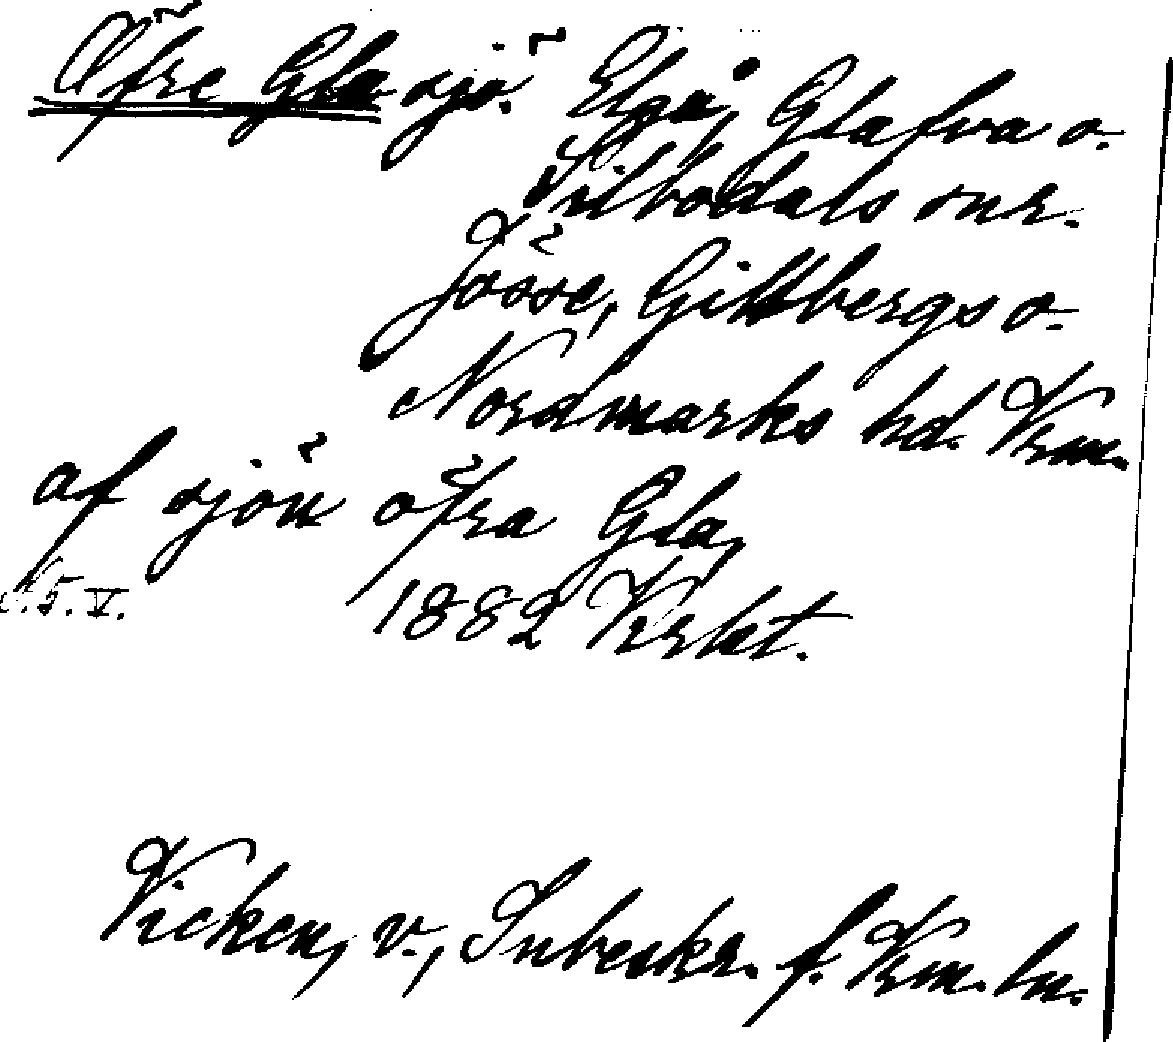 Öfre Gla sjö. Elgå, Glafva o.
Silbodals snr.
Jösse, Gillbergs o.
Nordmarks hd. Vrm.
af sjön öfra Gla,
1882 Vrkt.
5. V.
Vicken, v., Snbeskr. f. Vrm. ln.